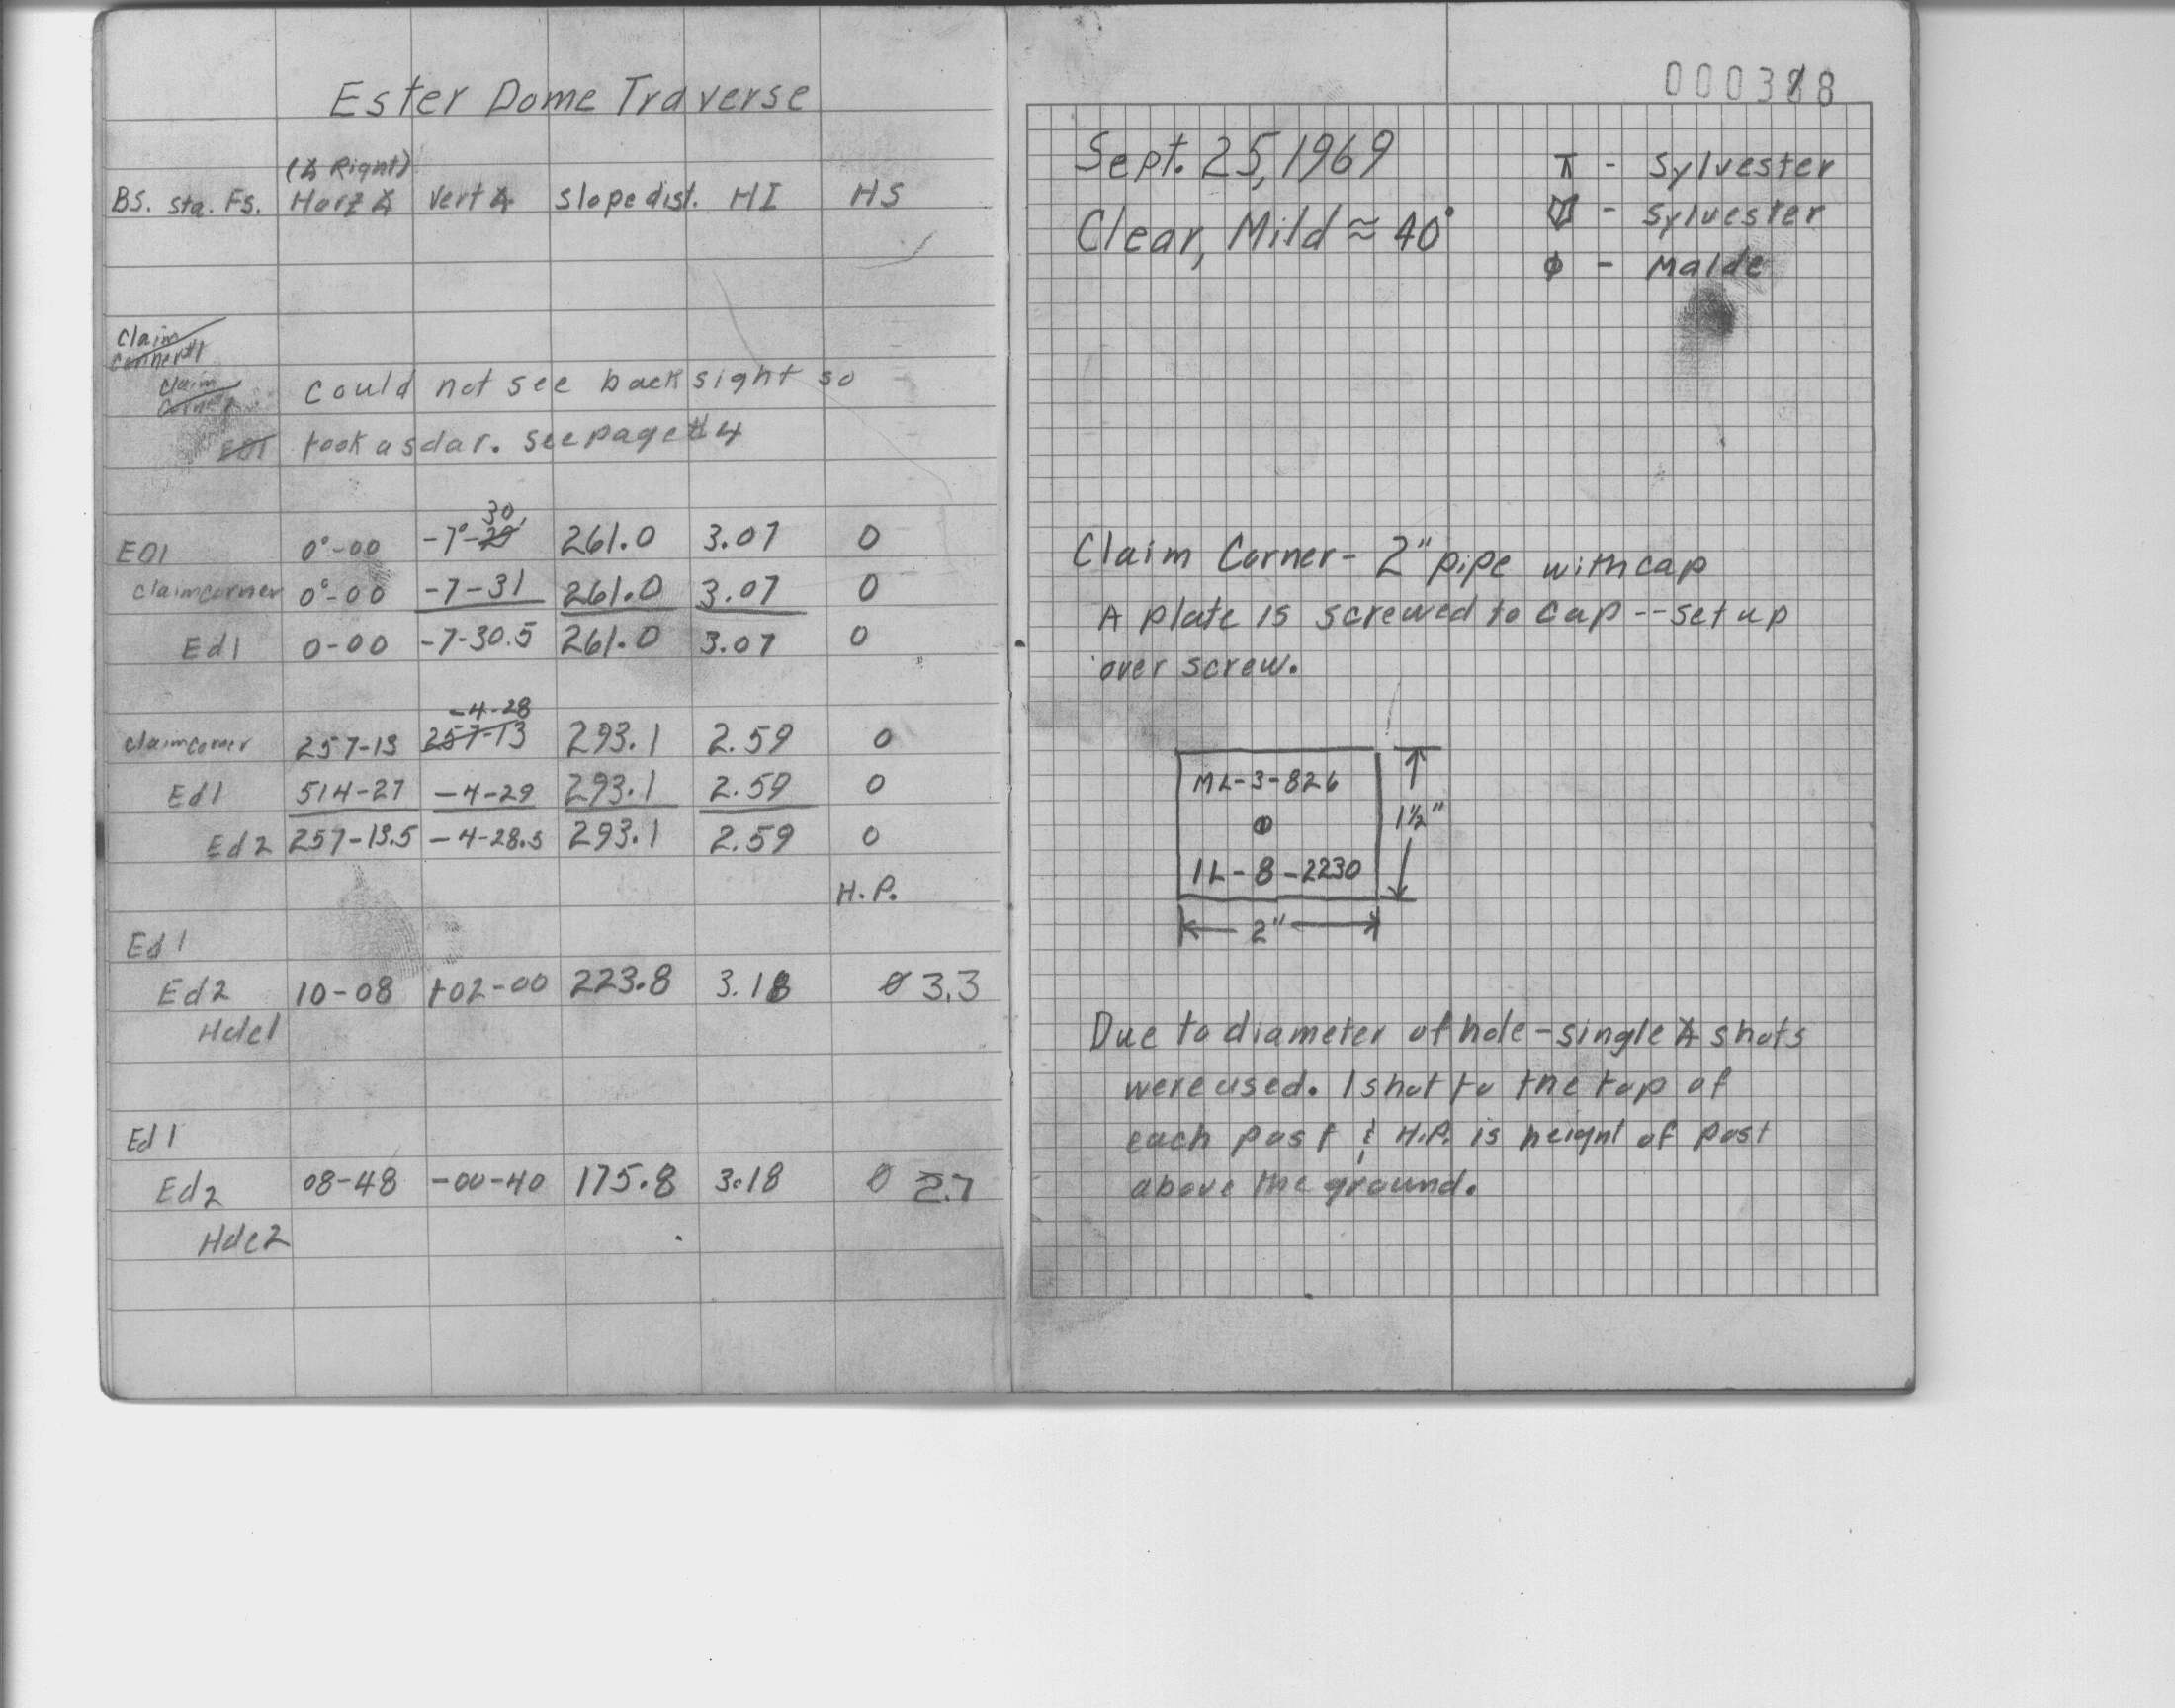 Ester Dome Traverse
(∡ Right)
BS. Sta. Fs. Horz ∡ Vert ∡ Slope dist. HI HS
Claim
Corner #1
Claim
Corner
could not see backsight so
EO1 took a solar. see page #4
30'
EO1 0°-00 -7°-29 261.0 3.07 0
Claim corner 0°-00 -7-31 261.0 3.07 0
Ed1 0-00 -7-30.5 261.0 3.07 0
-4-28
claim corner 257-13 257-13 293.1 2.59 0
Ed1 514-27 -4-29 293.1 2.59 0
Ed2 257-13.5 -4-28.5 293.1 2.59 0
H.P.
Ed1
Ed2 10-08 +02-00 223.8 3.18 0 3.3
Hole1
Ed1
Ed2 08-48 -00-40 175.8 3.18 0 2.7
Hole2
Sept. 25, 1969
Clear, Mild ≈ 40°
⊼ - Sylvester
- Sylvester
ϕ - Malde
Claim Corner - 2" pipe with cap
A plate is screwed to cap -- set up
over screw.
ML-3-826
1L-8-2230
1½"
2"
Due to diameter of hole - single ∡ shots
were used. I shot to the top of
each post & H.P. is height of post
above the ground.